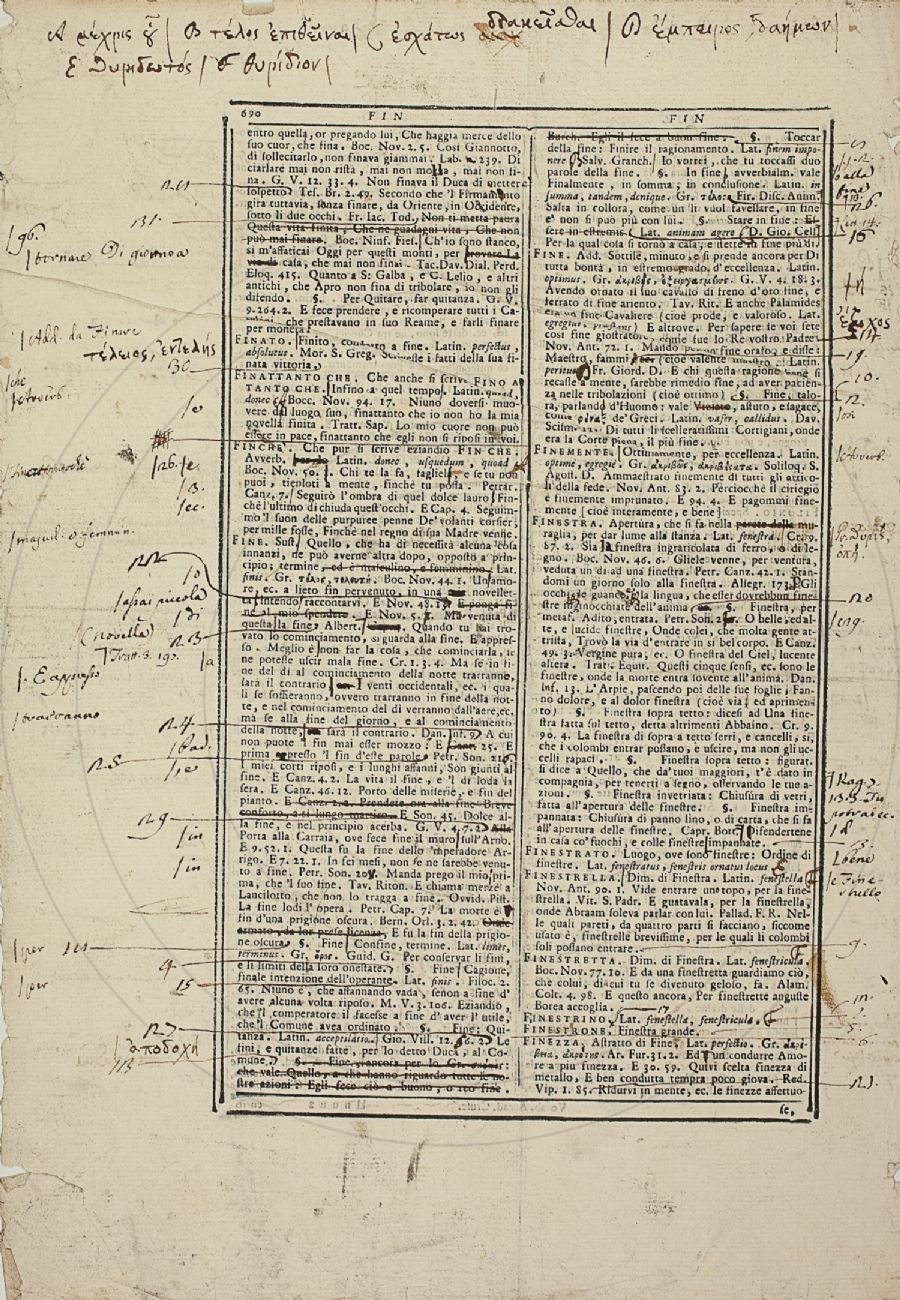 A μέχρις οὗ / B τέλος ἐπιθεῖναι / C ἐσχάτως διακεῖσθαι / D ἔμπειρος, δαήμων /
E θυριδωτός / F θυρίδιον /
690 FIN FIN
entro quella, or pregando lui, Che haggia merce dello
suo cuor, che fina. Boc. Nov. 2. 5. Così Giannotto,
di sollecitarlo, non finava giammai. Lab. n. 239. Di
ciarlare mai non rista, mai non molla, mai non fi-
na. G. V. 12. 33. 4. Non finava il Duca di metter
sospetto. Tes. Br. 2. 49. Secondo che 'l Firmamento
gira tuttavia, sanza finare, da Oriente, in Occidente,
sotto li due occhi. Fr. Iac. Tod. Non ti metta paura
Questa vita finita, Che ne guadagni vita, Che non
può mai finare. Boc. Ninf. Fies. Ch'io sono stanco,
si m'affaticai Oggi per questi monti, per trovare La
via di casa, che mai non finai. Tac. Dav. Dial. Perd.
Eloq. 415. Quanto a S. Galba, e C. Lelio, e altri
antichi, che Apro non fina di tribolare, io non gli
difendo. §. Per Quitare, far quitanza. G. V.
9. 264. 2. E fece prendere, e ricomperare tutti i Ca-
che prestavano in suo Reame, e farli finare
per moneta.
FINATO. Finito, condotto a fine. Latin. perfectus,
absolutus. Mor. S. Greg. Scrisse i fatti della sua fi-
nata vittoria.
FINATTANTO CHE. Che anche si scrive FINO A
TANTO CHE. Infino a quel tempo. Latin. quoad,
donec. Bocc. Nov. 94. 17. Niuno doversi muo-
vere dal luogo suo, finattanto che io non ho la mia
novella finita. Tratt. Sap. Lo mio cuore non può
essere in pace, finattanto che egli non si riposi in voi.
FINCHÈ. Che pur si scrive eziandio FIN CHE.
Avverb. Latin. donec, usquedum, quoad.
Boc. Nov. 50. 3. Chi te la fa, fagliele, e se tu non
puoi, tienloti a mente, finchè tu possa. Petrar.
Canz. 7. Seguirò l'ombra di quel dolce lauro Fin-
chè l'ultimo dì chiuda quest'occhi. E Cap. 4. Seguim-
mo 'l suon delle purpuree penne De' volanti corsier,
per mille fosse, Finchè nel regno di sua Madre venne.
FINE. Sust. Quello, che ha di necessità alcuna cosa
innanzi, ne può averne altra dopo, opposto a prin-
cipio; termine, ed è masculino, e femminino. Lat.
finis. Gr. τέλος, τελευτή. Boc. Nov. 44. 1. Un amo-
re, ec. a lieto fin pervenuto, in una novellet-
ta intendo raccontarvi. E Nov. 48. 13. E ponga fi-
ne al mio spendere. E Nov. 5. 1. Ma venuta di
questa la fine. Albert. Quando tu hai tro-
vato lo cominciamento, si guarda alla fine. E appres-
so. Meglio è non far la cosa, che cominciarla, se
ne potesse uscir mala fine. Cr. 1. 3. 4. Ma se in fi-
ne del dì al cominciamento della notte trarranno,
sarà il contrario. I venti occidentali, ec. i qua-
li se soffieranno, ovvero trarranno in fine della not-
te, e nel cominciamento del dì verranno dall'aere, ec.
ma se alla fine del giorno, e al cominciamento
della notte, sarà il contrario. Dan. Inf. 9. A cui
non puote 'l fin mai esser mozzo: E 25. E
prima appresso 'l fin d'este parole. Petr. Son. 216.
I miei corti riposi, e i lunghi affanni, Son giunti al
fine. E Canz. 4. 2. La vita il fine, e 'l dì loda la
sera. E Canz. 46. 12. Porto delle miserie, e fin del
pianto. E Canz. 2. 2. Prendete ora alla fine Breve
conforto, a sì lungo martiro. E Son. 45. Dolce al-
la fine, e nel principio acerba. G. V. 4. 7. 2. Alla
Porta alla Carraia, ove fece fine il muro sull'Arno.
E 9. 52. 1. Questa fu la fine dello 'mperadore Ar-
rigo. E 7. 22. 1. In sei mesi, non se ne sarebbe venu-
to a fine. Petr. Son. 20. Manda prego il mio, pri-
ma, che 'l suo fine. Tav. Riton. E chiama merzè a
Lancilotto, che non lo tragga a fine. Ovvid. Pist.
La fine lodi l'opera. Petr. Cap. 7. La morte è
fin d'una prigione oscura. Bern. Orl. 3. 2. 42.
E fu la fin della prigio-
ne oscura. §. Fine Confine, termine. Lat. limes,
terminus. Gr. ὅρος. Guid. G. Per conservar li fini,
e li limiti della loro onestate. §. Fine Cagione,
finale intenzione dell'operante. Lat. finis. Filoc. 2.
65. Niuno è, che affannando vada, senon a fine d'
avere alcuna volta riposo. M. V. 3. 106. Eziandio,
che l'omperatore il facesse a fine d'aver l'utile,
che 'l Comune avea ordinato. §. Fine: Qui-
tanza. Latin. acceptilatio. Gio. Vill. 12. 56. 2. Le
fini, e quitanze fatte, per lo detto Duca, al Co-
mune. §. Fine, ancora per lo Gr.
che vale Quello, a che hanno riguardo tutte le no-
stre azioni: Egli fece ciò a buono, o reo fine.
Burch. Egli il fece a buon fine. §. Toccar
della fine: Finire il ragionamento. Lat. finem impo-
nere. Salv. Granch. Io vorrei, che tu toccassi duo
parole della fine. §. In fine, avverbialm. vale
Finalmente, in somma, in conclusione. Latin. in
summa, tandem, denique. Gr. τέλος. Fir. Disc. Anim.
Salta in collora, come un lì vuol favellare, in fine
e' non si può più con lui. §. Stare in fine: Es-
sere in estremis. Lat. animam agere. D. Gio. Cell.
Per la qual cosa si tornò a casa, e stette in fine più dì.
FINE. Add. Sottile, minuto, e si prende ancora per Di
tutta bontà, in estremo grado d'eccellenza. Latin.
optimus. Gr. ἀκριβὴς, ἐξειργασμένος. G. V. 4. 18. 3.
Avendo ornato il suo cavallo di freno d'oro fine, e
ferrato di fine ariento. Tav. Rit. E anche Palamides
era un fine Cavaliere (cioè prode, e valoroso. Lat.
egregius, praestans) E altrove. Per sapere se voi sete
così fine giostratore, come fue lo Re vostro Padre.
Nov. Ant. 72. 1. Mandò per un fine orafo, e disse:
Maestro, fammi (cioè valente maestro. Latin.
peritus) Fr. Giord. D. E chi questa ragione bene si
recasse a mente, sarebbe rimedio fine, ad aver pazien-
za nelle tribolazioni (cioè ottimo) §. Fine, talo-
ra, parlando d'Huomo: vale Viziato, astuto, e sagace,
de' Greci. Latin. vafer, callidus. Dav.
Scism. 22. Di tutti li scelleratissimi Cortigiani, onde
era la Corte piena, il più fine.
FINEMENTE. Ottimamente, per eccellenza. Latin.
optime, egregie. Gr. ἀκριβῶς, ἀκριβέστατα. Soliloq. S.
Agost. D. Ammaestrato finemente di tutti gli artico-
li della fede. Nov. Ant. 83. 2. Perciocchè il ciriegio
è finemente imprunato. E 94. 4. E pagommi fine-
mente [cioè interamente, e bene]
FINESTRA. Apertura, che si fa nella parete della mu-
raglia, per dar lume alla stanza. Lat. fenestra. Cr. 9.
87. 2. Sia la finestra ingraticolata di ferro, o di le-
gno. Boc. Nov. 46. 6. Gliele venne, per ventura,
veduta un dì ad una finestra. Petr. Canz. 42. 1. Stan-
domi un giorno solo alla finestra. Allegr. 173. Gli
occhi, se guance, o la lingua, che esser dovrebbon fine-
stre inginocchiate dell'anima. §. Finestra, per
metaf. Adito, entrata. Petr. Son. 2. O belle, ed al-
te, e lucide finestre, Onde colei, che molta gente at-
trista, Trovò la via d'entrare in sì bel corpo. E Canz.
49. 3. Vergine pura, ec. O finestra del Ciel, lucente
altera. Tratt. Equit. Questi cinque sensi, ec. sono le
finestre, onde la morte entra sovente all'anima. Dan.
Inf. 13. L'Arpie, pascendo poi delle sue foglie, Fan-
no dolore, e al dolor finestra (cioè via, ed aprimen-
to) §. Finestra sopra tetto: dicesi ad Una fine-
stra fatta sul tetto, detta altrimenti Abbaino. Cr. 9.
90. 4. La finestra di sopra a tetto serri, e cancelli, sì,
che i colombi entrar possano, e uscire, ma non gli uc-
celli rapaci. §. Finestra sopra tetto: figurat.
si dice a Quello, che da' tuoi maggiori, t'è dato in
compagnia, per tenerti a segno, osservando le tue a-
zioni. §. Finestra invetriata: Chiusura di vetri,
fatta all'apertura delle finestre. §. Finestra im-
pannata: Chiusura di panno lino, o di carta, che si fa
all'apertura delle finestre. Capr. Bott. Difendertene
in casa co' fuochi, e colle finestre impannate.
FINESTRATO. Luogo, ove sono finestre: Ordine di
finestre. Lat. fenestratus, fenestris ornatus locus.
FINESTRELLA. Dim. di Finestra. Latin. fenestella.
Nov. Ant. 90. 1. Vide entrare uno topo, per la fine-
strella. Vit. S. Padr. E guatava, per la finestrella,
onde Abraam soleva parlar con lui. Pallad. F. R. Nel-
le quali pareti, da quattro parti si facciano, siccome
usato è, finestrelle brevissime, per le quali li colombi
soli possano entrare.
FINESTRETTA. Dim. di Finestra. Lat. fenestricula.
Boc. Nov. 77. 10. E da una finestretta guardiamo ciò,
che colui, di cui tu se divenuto geloso, fa. Alam.
Colt. 4. 98. E questo ancora, Per finestrette anguste
Borea accoglia.
FINESTRINO. Lat. fenestella, fenestricula.
FINESTRONE. Finestra grande.
FINEZZA. Astratto di Fine. Lat. perfectio. Gr. ἀκρί-
βεια, ἀκρότης. Ar. Fur. 31. 2. Ed un condurre Amo-
re a più finezza. E 30. 59. Quivi scelta finezza di
metallo, E ben condutta tempra poco giova. Red.
Vip. 1. 85. Ridurvi in mente, ec. le finezze affettuo-
se,
131.
96.
/tornare Di giornea
/Add. da Finire
τέλειος, ἐντελής
130
/che
/Avverb.
/e
/126. /e
/3.
/ec.
/mascul. o femmin.
/assai piccola
/di
(novella)
/Tratt. S. 190.
/. E appresso
/trarranno
124
/Pad.
125
/in
/in
/per
/per
15
127
/ἀποδοχή
113
/alla
fine
126.
19.
10.
12.
/Avverb.
120
/bene
/e Fine-
strello
9.
121.